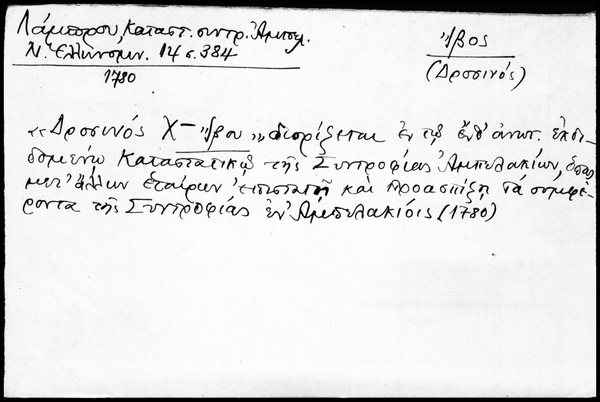 Λάμπρου, Καταστ. συντρ. Ἀμπελ.
Ν. Ἑλληνομν. 14 σ. 384
1780
Ἴβος
(Δροσινός)
«Δροσινός Χ" Ἴβου» διορίζεται ἐν τῷ ἔνθ' ἀνωτ. ἐκδι-
δομένῳ Καταστατικῷ τῆς Συντροφίας Ἀμπελακίων, ὅπως
μετ' ἄλλων ἑταίρων ἐπιστατῇ καὶ προασπίζῃ τὰ συμφέ-
ροντα τῆς Συντροφίας ἐν Ἀμπελακίοις (1780)